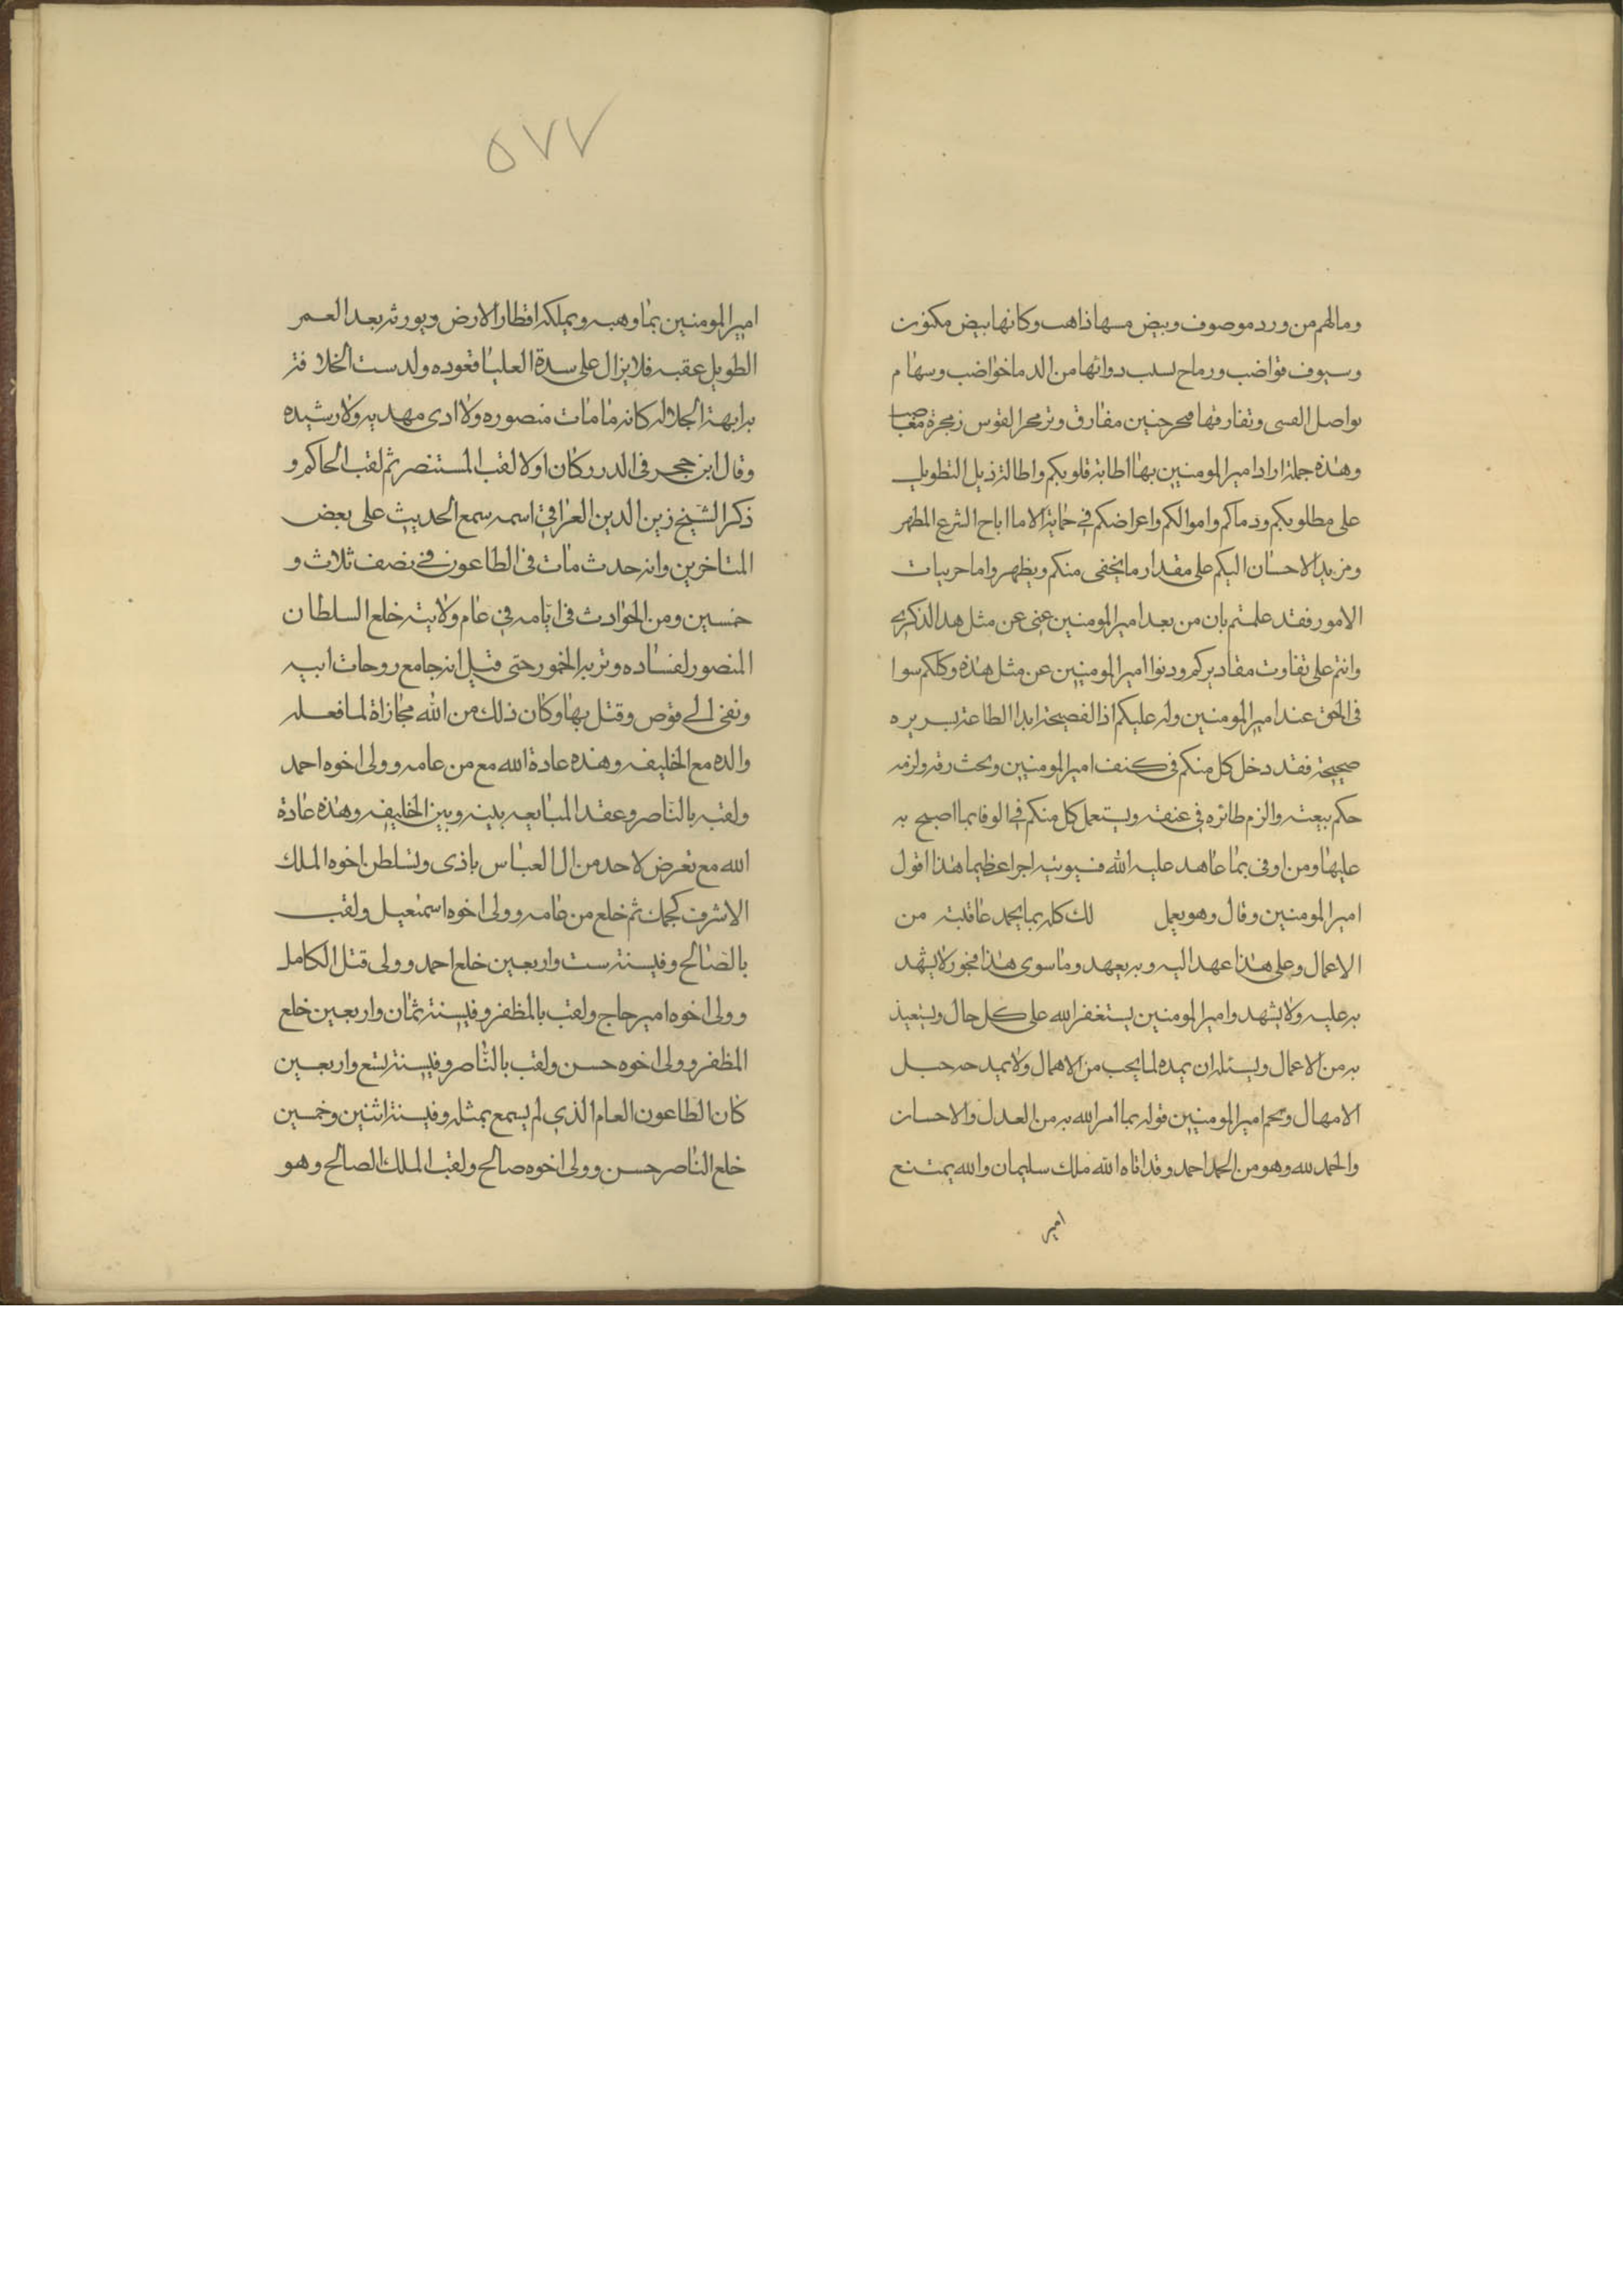 ومالهم من ورد موصوف وبيض مسها ذاهب وكانها بيض مكنون
وسيوف قواضب ورماح لسبب دوائها من الدما خواضب وسهام
تواصل القسى وتفارقها فتحن حنين مفارق وتزمجر القوس زمجرة مغاضب
وهذه جملة اراد امير المومنين بها اطابة قلوبكم واطالة ذيل التطويل
على مطلوبكم ودماكم واموالكم واعراضكم فى حماية الا ما اباح الشرع المطهر
ومزيد الاحسان اليكم على مقدار ما يخفى منكم ويظهر واما جربيات
الامور فقد علمتم بان من بعد امير المومنين غنى عن مثل هذا الذكرى
وانتم على تفاوت مقاديركم ودنوا امير المومنين عن مثل هذه وكلكم سوا
فى الحق عند امير المومنين وله عليكم اذا الفصيحة ابدا الطاعة بسريره
صحيحة فقد دخل كل منكم فى كنف امير المومنين وتحت رقه ولزمه
حكم بيعته والزم طائره فى عنقه ويستعمل كل منكم فى الوفا بما اصبح به
عليها ومن اوفى بما عاهد عليه الله فسيوتيه اجرا عظيما هذا اقول
امير المومنين وقال وهو يعمل لك كله بما يحمد عاقبته من
الاعمال وعلى هذا عهد اليه وبه يعهد وما سوى هذا فجور لا يشهد
به عليه ولا يشهد وامير المومنين يستغفر الله على كل حال ويستعيذ
به من الاعمال ويسئله ان يمده لما يحب من الاهمال ولا يمد حه حبل
الامهال ويختم امير المومنين قوله بما امر الله به من العدل والاحسان
والحمد لله وهو من الحمد احمد وقد اتاه الله ملك سليمان والله يمتع
امير
٥٧٧
امير المومنين بما وهبه ويملكه اقطار الارض ويورثه بعد العمر
الطويل عقبه فلا يزال على سدة العليا قعوده ولدست الخلافة
به ابهة الجلالة كانه ما مات منصوره ولا ادى مهديه ولا رشيده
وقال ابن حجر فى الدرر كان اولا لقب المستنصر ثم لقب الحاكم و
ذكر الشيخ زين الدين العراقى اسمه سمع الحديث على بعض
المتاخرين وانه حدث مات فى الطاعون فى نصف ثلاث و
خمسين ومن الحوادث فى ايامه فى عام ولايته خلع السلطان
المنصور لفساده وتربه الخمور حتى قيل انه جامع روجات ابيه
ونفى الى قوص وقتل بها وكان ذلك من الله مجازاة لما فعله
والده مع الخليفه وهذه عادة الله مع من عامه وولى اخوه احمد
ولقبه بالناصر وعقد المبايعه بينه وبين الخليفه وهذه عادة
الله مع تعرض لاحد من ال العباس باذى وتسلطن اخوه الملك
الاشرف كجك ثم خلع من عامه وولى اخوه اسمعيل ولقب
بالصالح وفي سنة ست واربعين خلع احمد وولى قتل الكامل
وولى اخوه امير حاج ولقب بالمظفر وفي سنة ثمان واربعين خلع
المظفر وولى اخوه حسن ولقب بالناصر وفي سنة تسع واربعين
كان الطاعون العام الذي لم يسمع بمثله وفي سنة اثنين وخمسين
خلع الناصر حسن وولى اخوه صالح ولقب الملك الصالح وهو